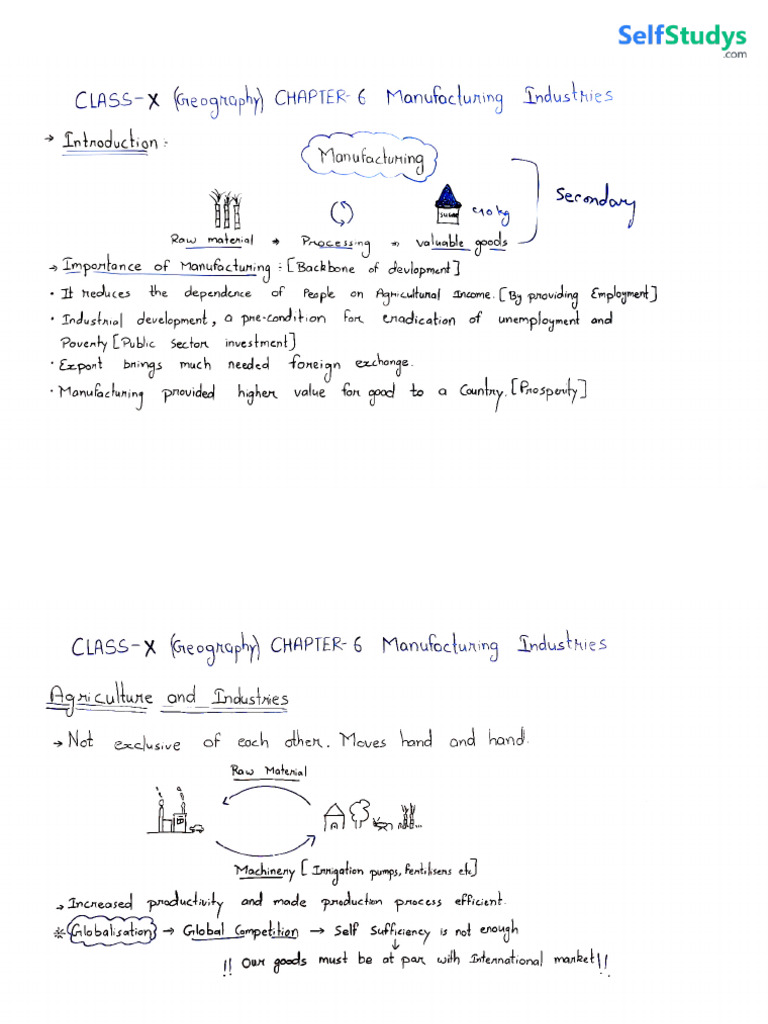 SelfStudys
.com
CLASS-X (Geography) CHAPTER-6 Manufacturing Industries
→ Introduction:
Manufacturing
Secondary
SUGAR
Raw material → Processing → valuable goods
→ Importance of Manufacturing: [Backbone of devlopment]
• It reduces the dependence of People on Agricultural Income. [By providing Employment]
• Industrial development, a pre-condition for eradication of unemployment and
Poverty [Public sector investment]
• Export brings much needed foreign exchange.
• Manufacturing provided higher value for good to a Country. [Prosperity]
CLASS-X (Geography) CHAPTER-6 Manufacturing Industries
Agriculture and Industries
→ Not exclusive of each other. Moves hand and hand.
Raw Material
Machinery [Irrigation pumps, Fertilisers etc]
→ Increased productivity and made production process efficient.
* Globalisation → Global Competition → Self Sufficiency is not enough
↓
!! Our goods must be at par with International market !!